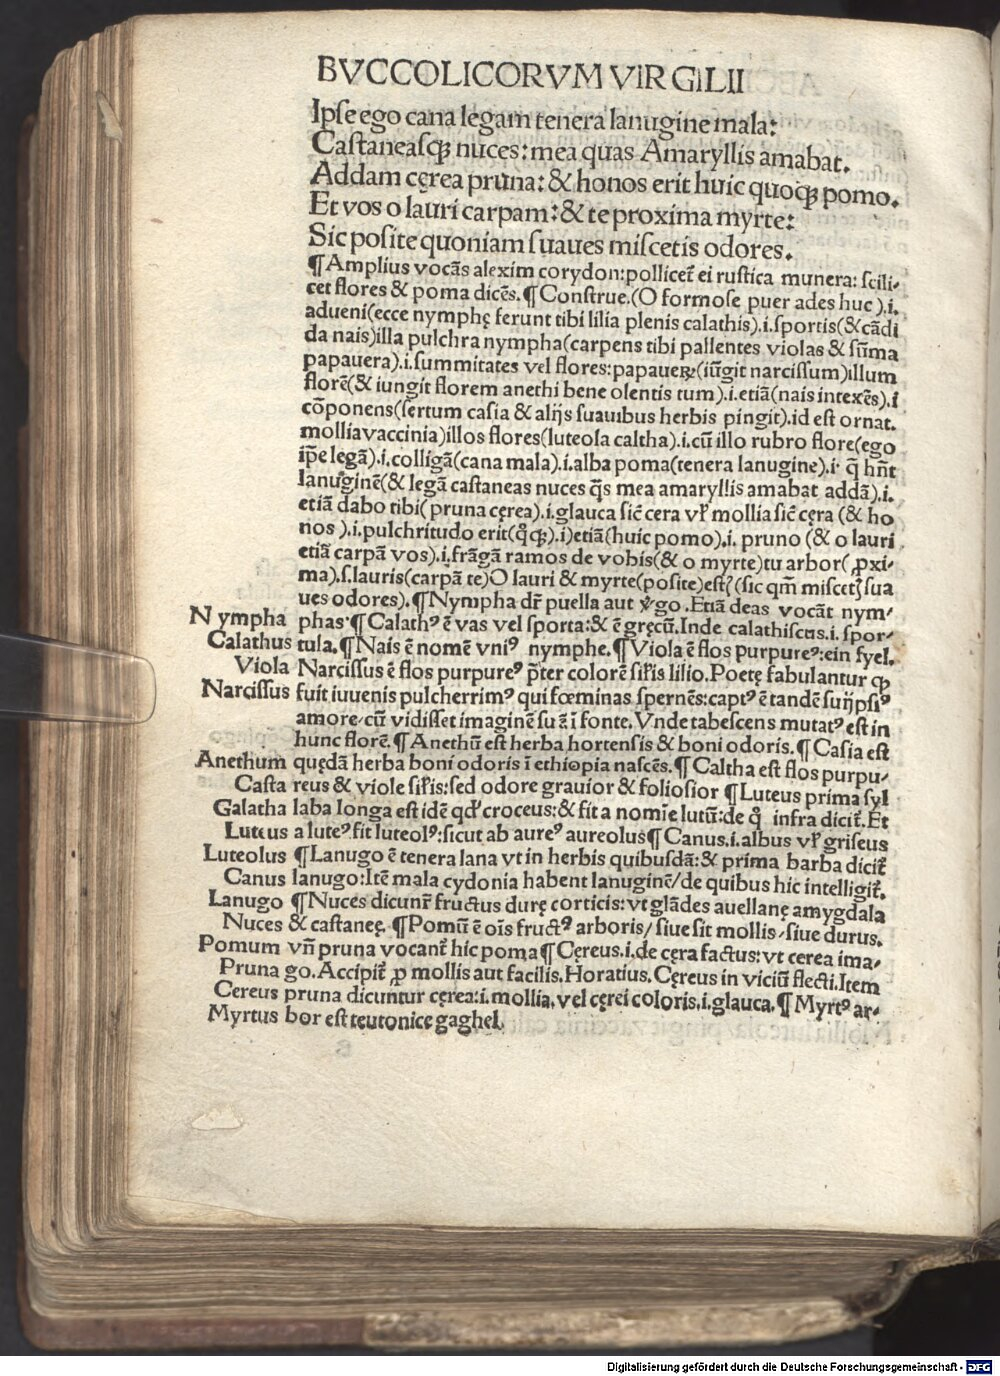 BVCCOLICORVM VIRGILII
Ipse ego cana legam tenera lanugine mala:
Castaneasqꝫ nuces: mea quas Amaryllis amabat.
Addam cęrea pruna: & honos erit huic quoqꝫ pomo.
Et vos o lauri carpam: & te proxima myrte:
Sic posite quoniam suaues miscetis odores.
¶Amplius vocãs alexim corydon: pollicet̃ ei rustica munera: scili-
cet flores & poma dicẽs. ¶Construe.(O formose puer ades huc).i.
adueni(ecce nymphę ferunt tibi lilia plenis calathis).i.sportis(& cãdi
da nais)illa pulchra nympha(carpens tibi pallentes violas & sũma
papauera).i.summitates vel flores: papaueꝝ(iũgit narcissum)illum
florẽ(& iungit florem anethi bene olentis tum).i.etiã(nais intexẽs).i
cõponens(sertum casia & alijs suauibus herbis pingit).id est ornat.
mollia vaccinia)illos flores(luteola caltha).i.cũ illo rubro flore(ego
ip̃e legã).i.colligã(cana mala).i.alba poma(tenera lanugine).i. q̃ hñt
lanuginẽ(& legã castaneas nuces q̃s mea amaryllis amabat addã).i.
etiã dabo tibi(pruna cęrea).i.glauca sic̃ cera vł mollia sic̃ cęra (& ho
nos ).i.pulchritudo erit(q̊qꝫ).i)etiã(huic pomo).i. pruno (& o lauri
etiã carpã vos).i.frãgã ramos de vobis(& o myrte)tu arbor(ꝓxi-
ma).s.lauris(carpã te)O lauri & myrte(posite)estꝭ(sic qm̃ miscetꝭ sua
ues odores). ¶Nympha dr̃ puella aut v̊go. Etiã deas vocãt nym-
Nympha phas. ¶Calathꝰ ẽ vas vel sporta: & ẽ gręcũ. Inde calathiscus.i.spor-
Calathus tula. ¶Nais ẽ nomẽ vniꝰ nymphe. ¶Viola ẽ flos purpureꝰ: ein fyel.
Viola Narcissus ẽ flos purpureꝰ p̃ter colorẽ sił'is lilio. Poetę fabulantur ꝙ
Narcissus fuit iuuenis pulcherrimꝰ qui fœminas spernẽs: captꝰ ẽ tandẽ suijpsiꝰ
amore/ cũ vidisset imaginẽ suã ĩ fonte. Vnde tabescens mutatꝰ est in
hunc florẽ. ¶Anethũ est herba hortensis & boni odoris. ¶Casia est
Anethum quędã herba boni odoris ĩ ethiopia nascẽs. ¶Caltha est flos purpu-
Casta reus & viole sił'is: sed odore grauior & foliosior ¶Luteus prima syl
Galatha laba longa est idẽ qđ croceus: & fit a nomĩe lutũ: de q̊ infra dicit̃. Et
Luteus a luteꝰ fit luteolꝰ: sicut ab aureꝰ aureolus ¶Canus.i.albus vł griseus
Luteolus ¶Lanugo ẽ tenera lana vt in herbis quibusdã: & prima barba dicit̃
Canus lanugo: Itẽ mala cydonia habent lanuginẽ/ de quibus hic intelligit̃.
Lanugo ¶Nuces dicunt̃ fructus durę corticis: vt glãdes auellanę amygdala
Nuces & castaneę. ¶Pomũ ẽ oĩs fructꝰ arboris/ siue sit mollis/ siue durus.
Pomum vñ pruna vocant̃ hic poma ¶Cęreus.i.de cęra factus: vt cerea ima-
Pruna go. Accipit̃ ꝓ mollis aut facilis. Horatius. Cęreus in viciũ flecti. Item
Cereus pruna dicuntur cęrea: i. mollia, vel cęrei coloris.i.glauca. ¶Myrtꝰ ar-
Myrtus bor est teutonice gaghel.
Digitalisierung gefördert durch die Deutsche Forschungsgemeinschaft - DFG